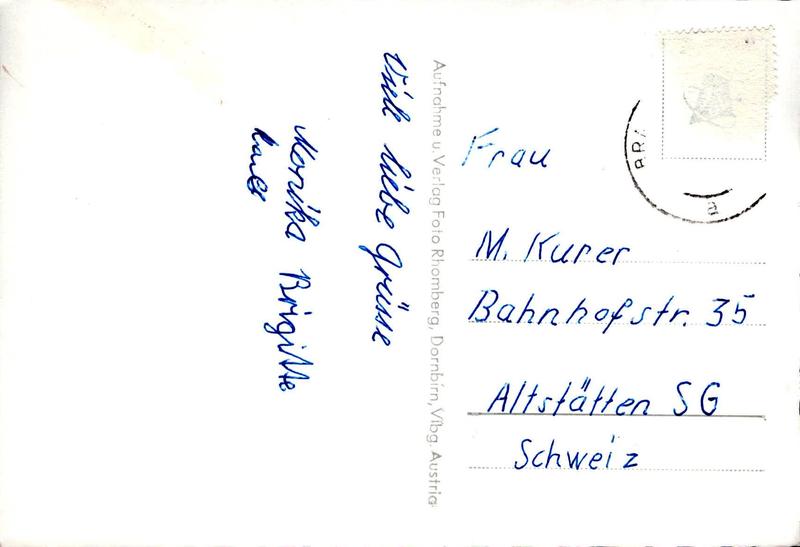 Viele liebe Grüsse
Monika Brigitte
Aufnahme u. Verlag Foto Rhomberg, Dornbirn, Vlbg. Austria
BRA
a
Frau
M. Kurer
Bahnhofstr. 35
Altstätten SG
Schweiz